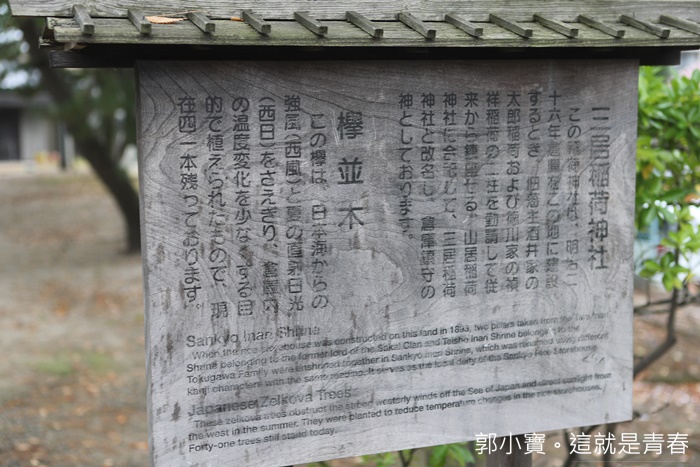 三居稲荷神社
この稲荷神社は、明治二
十六年倉庫をこの地に建設
するとき、旧藩主酒井家の
太郎稲荷および徳川家の禎
祥稲荷の二社を勧請して従
来から鎮座せる、山居稲荷
神社に合祀して、三居稲荷
神社と改名し、倉庫鎮守の
神としております。
欅並木
この欅は、日本海からの
強風(西風)と夏の直射日光
(西日)をさえぎり、倉庫内
の温度変化を少なくする目
的で植えられたもので、現
在四一本残っております。
Sankyo Inari Shrine
When the rice storehouse was constructed on this land in 1893, two pillars taken from the Taro Inari
Shrine belonging to the former lord of the Sakai Clan and Teisho Inari Shrine belonging to the
Tokugawa Family were enshrined together in Sankyo Inari Shrine, which was renamed using different
kanji characters with the same reading. It serves as the local deity of the Sankyo Rice Storehouse.
Japanese Zelkova Trees
These zelkova trees obstruct the strong westerly winds off the Sea of Japan and direct sunlight from
the west in the summer. They were planted to reduce temperature changes in the rice storehouse.
Forty-one trees still stand today.
郭小寶。這就是青春